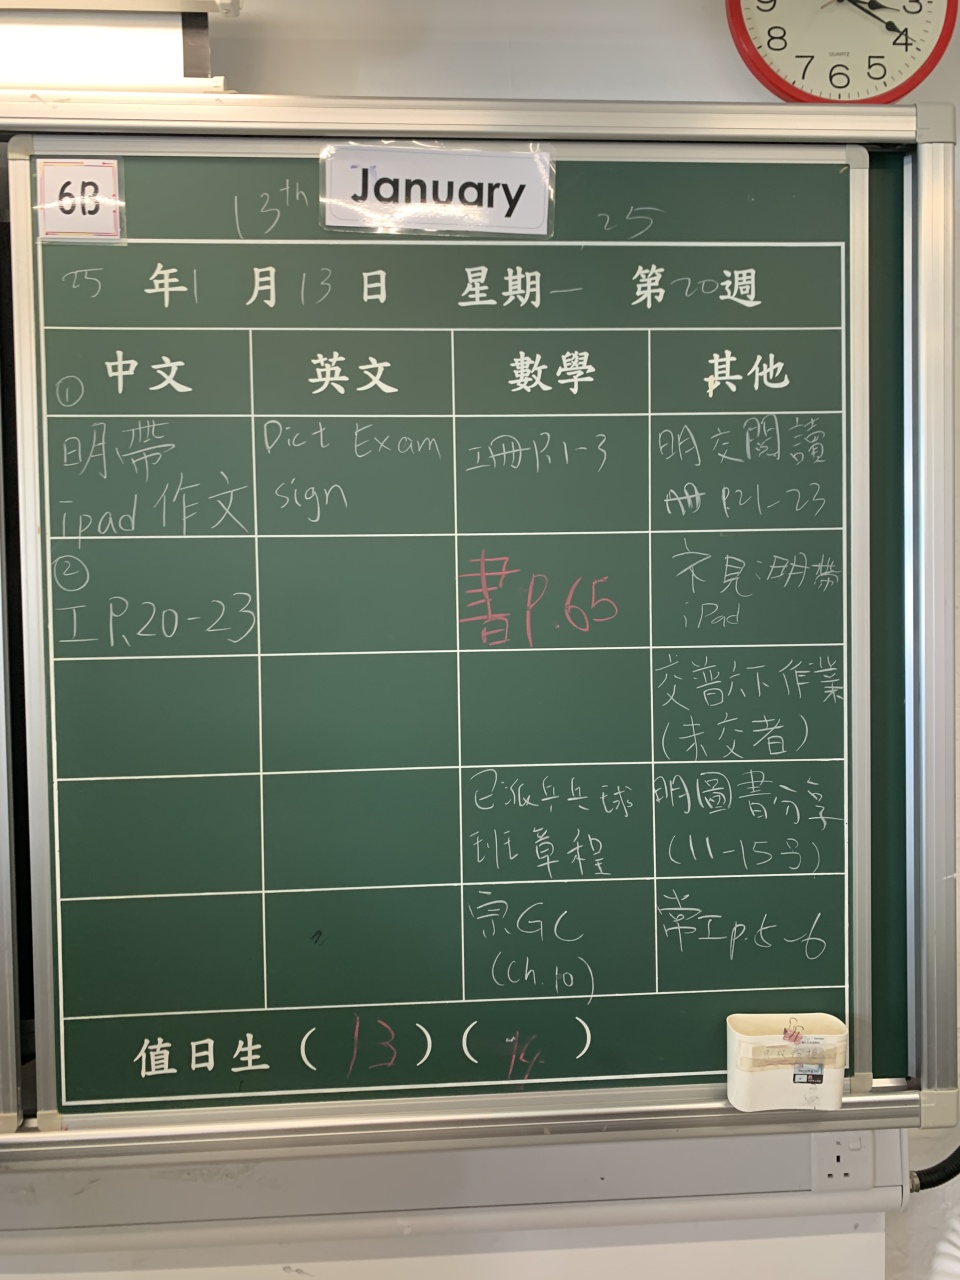 9 3
8 4
7 6 5
QUARTZ
6B
13th January 25
25 年 1 月 13 日 星期一 第 20 週
中文 英文 數學 其他
① 明帶
ipad 作文
Dict Exam
sign
工冊P.1-3
明交閱讀
冊 P.21-23
②
工 P.20-23
書 P.65
不見:明帶
iPad
交普六下作業
(未交者)
已派乒乓球
班章程
明圖書分享
(11-15号)
宗GC
(Ch.10)
常工p.5-6
值日生 ( 13 ) ( 14 )